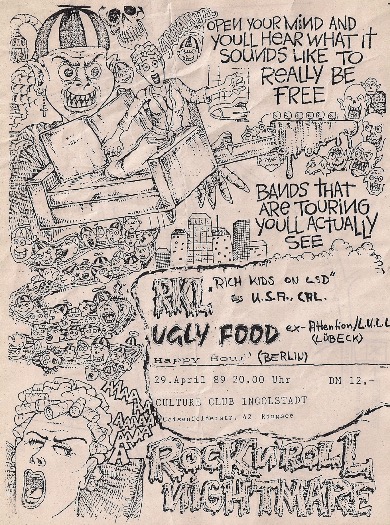 OPEN YOUR MIND AND
YOU'LL HEAR WHAT IT
SOUNDS LIKE TO
REALLY BE
FREE
BANDS THAT
ARE TOURING
YOU'LL ACTUALLY
SEE
RKL "RICH KIDS ON LSD"
U.S.A., CAL.
UGLY FOOD ex-Attention/L.U.L.L
(LÜBECK)
Happy Hour' (BERLIN)
29.April 89 20.00 Uhr DM 12,-
CULTURE CLUB INGOLSTADT
42
AAAAAAA
ROCK N ROLL
NIGHTMARE